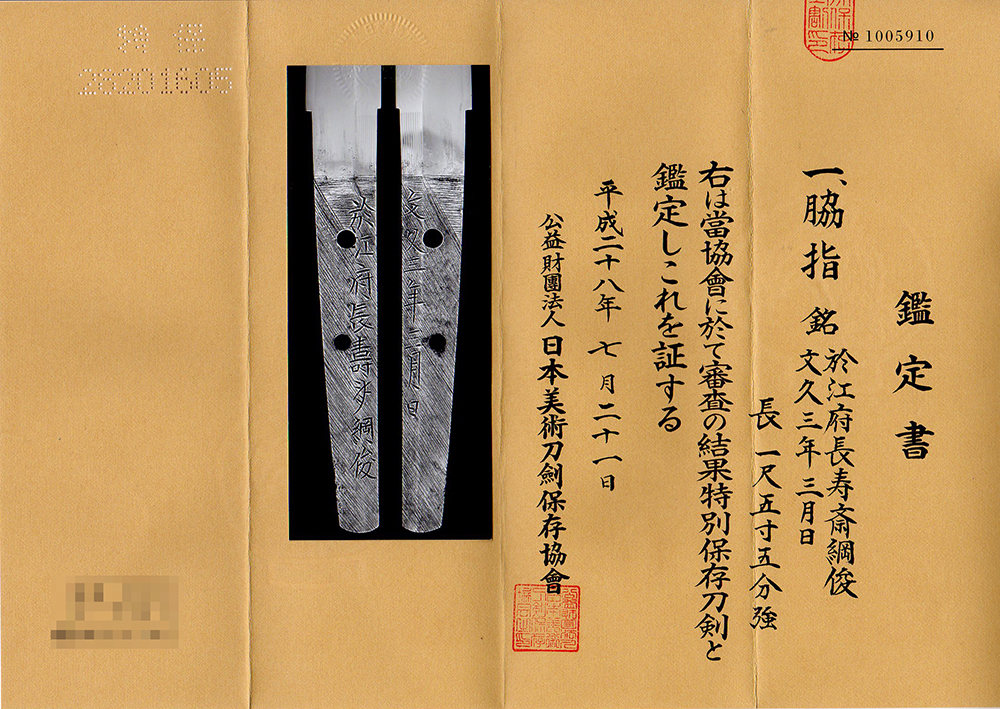 № 1005910
鑑定書
一、脇指 銘 於江府長寿斎綱俊
文久三年三月日
長 一尺五寸五分強
右は當協會に於て審査の結果特別保存刀剣と
鑑定しこれを証する
平成二十八年 七月二十一日
公益財團法人 日本美術刀剣保存協會
文久三年三月日
於江府長壽斎綱俊
28201605